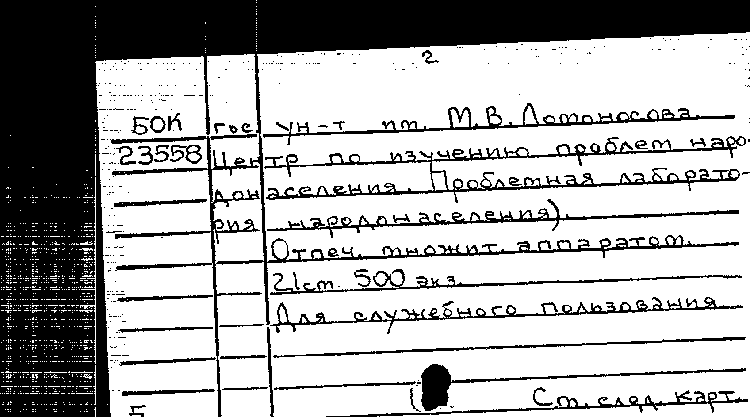 2
БОК гос ун-т им. М.В. Ломоносова.
23558 Центр по изучению проблем наро-
донаселения. Проблемная лаборато-
рия народонаселения).
Отпеч. множит. аппаратом.
21см. 500 экз.
Для служебного пользования
См. след. карт.
Б